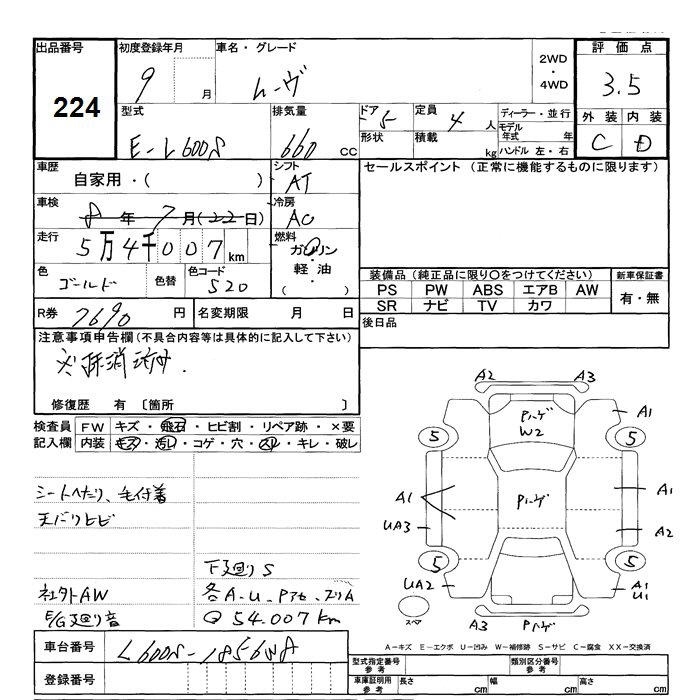 出品番号
224
初度登録年月
9 月
車名・グレード
ムーヴ
2WD
・
4WD
評価点
3.5
外装 内装
C D
型式
E-L600S
排気量
660 CC
ドア 5
形状
定員 4 人
積載 kg
ディーラー・並行
モデル年式 年
ハンドル 左・右
車歴
自家用・( )
シフト
AT
セールスポイント (正常に機能するものに限ります)
車検
8 年 7 月(22日)
冷房
AC
走行
5万4千007 km
燃料
ガソリン
・
軽油・
( )
色
ゴールド
色替
色コード
S20
装備品 (純正品に限り○をつけてください)
PS PW ABS エアB AW
SR ナビ TV カワ
新車保証書
有・無
R券 7690 円
名変期限 月 日
後日品
注意事項申告欄 (不具合内容等は具体的に記入して下さい)
※抹消済み.
修復歴 有 〔箇所 〕
検査員記入欄
FW キズ・飛石・ヒビ割・リペア跡・×要
内装 キズ・汚レ・コゲ・穴・スレ・キレ・破レ
シートヘたり、毛付着
天バリヒビ
下廻りS
社外AW
各A-U-Pアセ、スリA
E/G廻り音
@ 54.007km
車台番号
登録番号
A2 A3
Pハゲ
W2
A1
5 5
A1
Pハゲ
A1
UA3
A2
5 5
UA2
A1
U1
スペア
A3 Pハゲ
A-キズ E-エクボ U-凹み W-補修跡 S-サビ C-腐食 XX-交換済
型式指定番号
参考
類別区分番号
参考
車庫証明用
参考
長さ cm
幅 cm
高さ cm